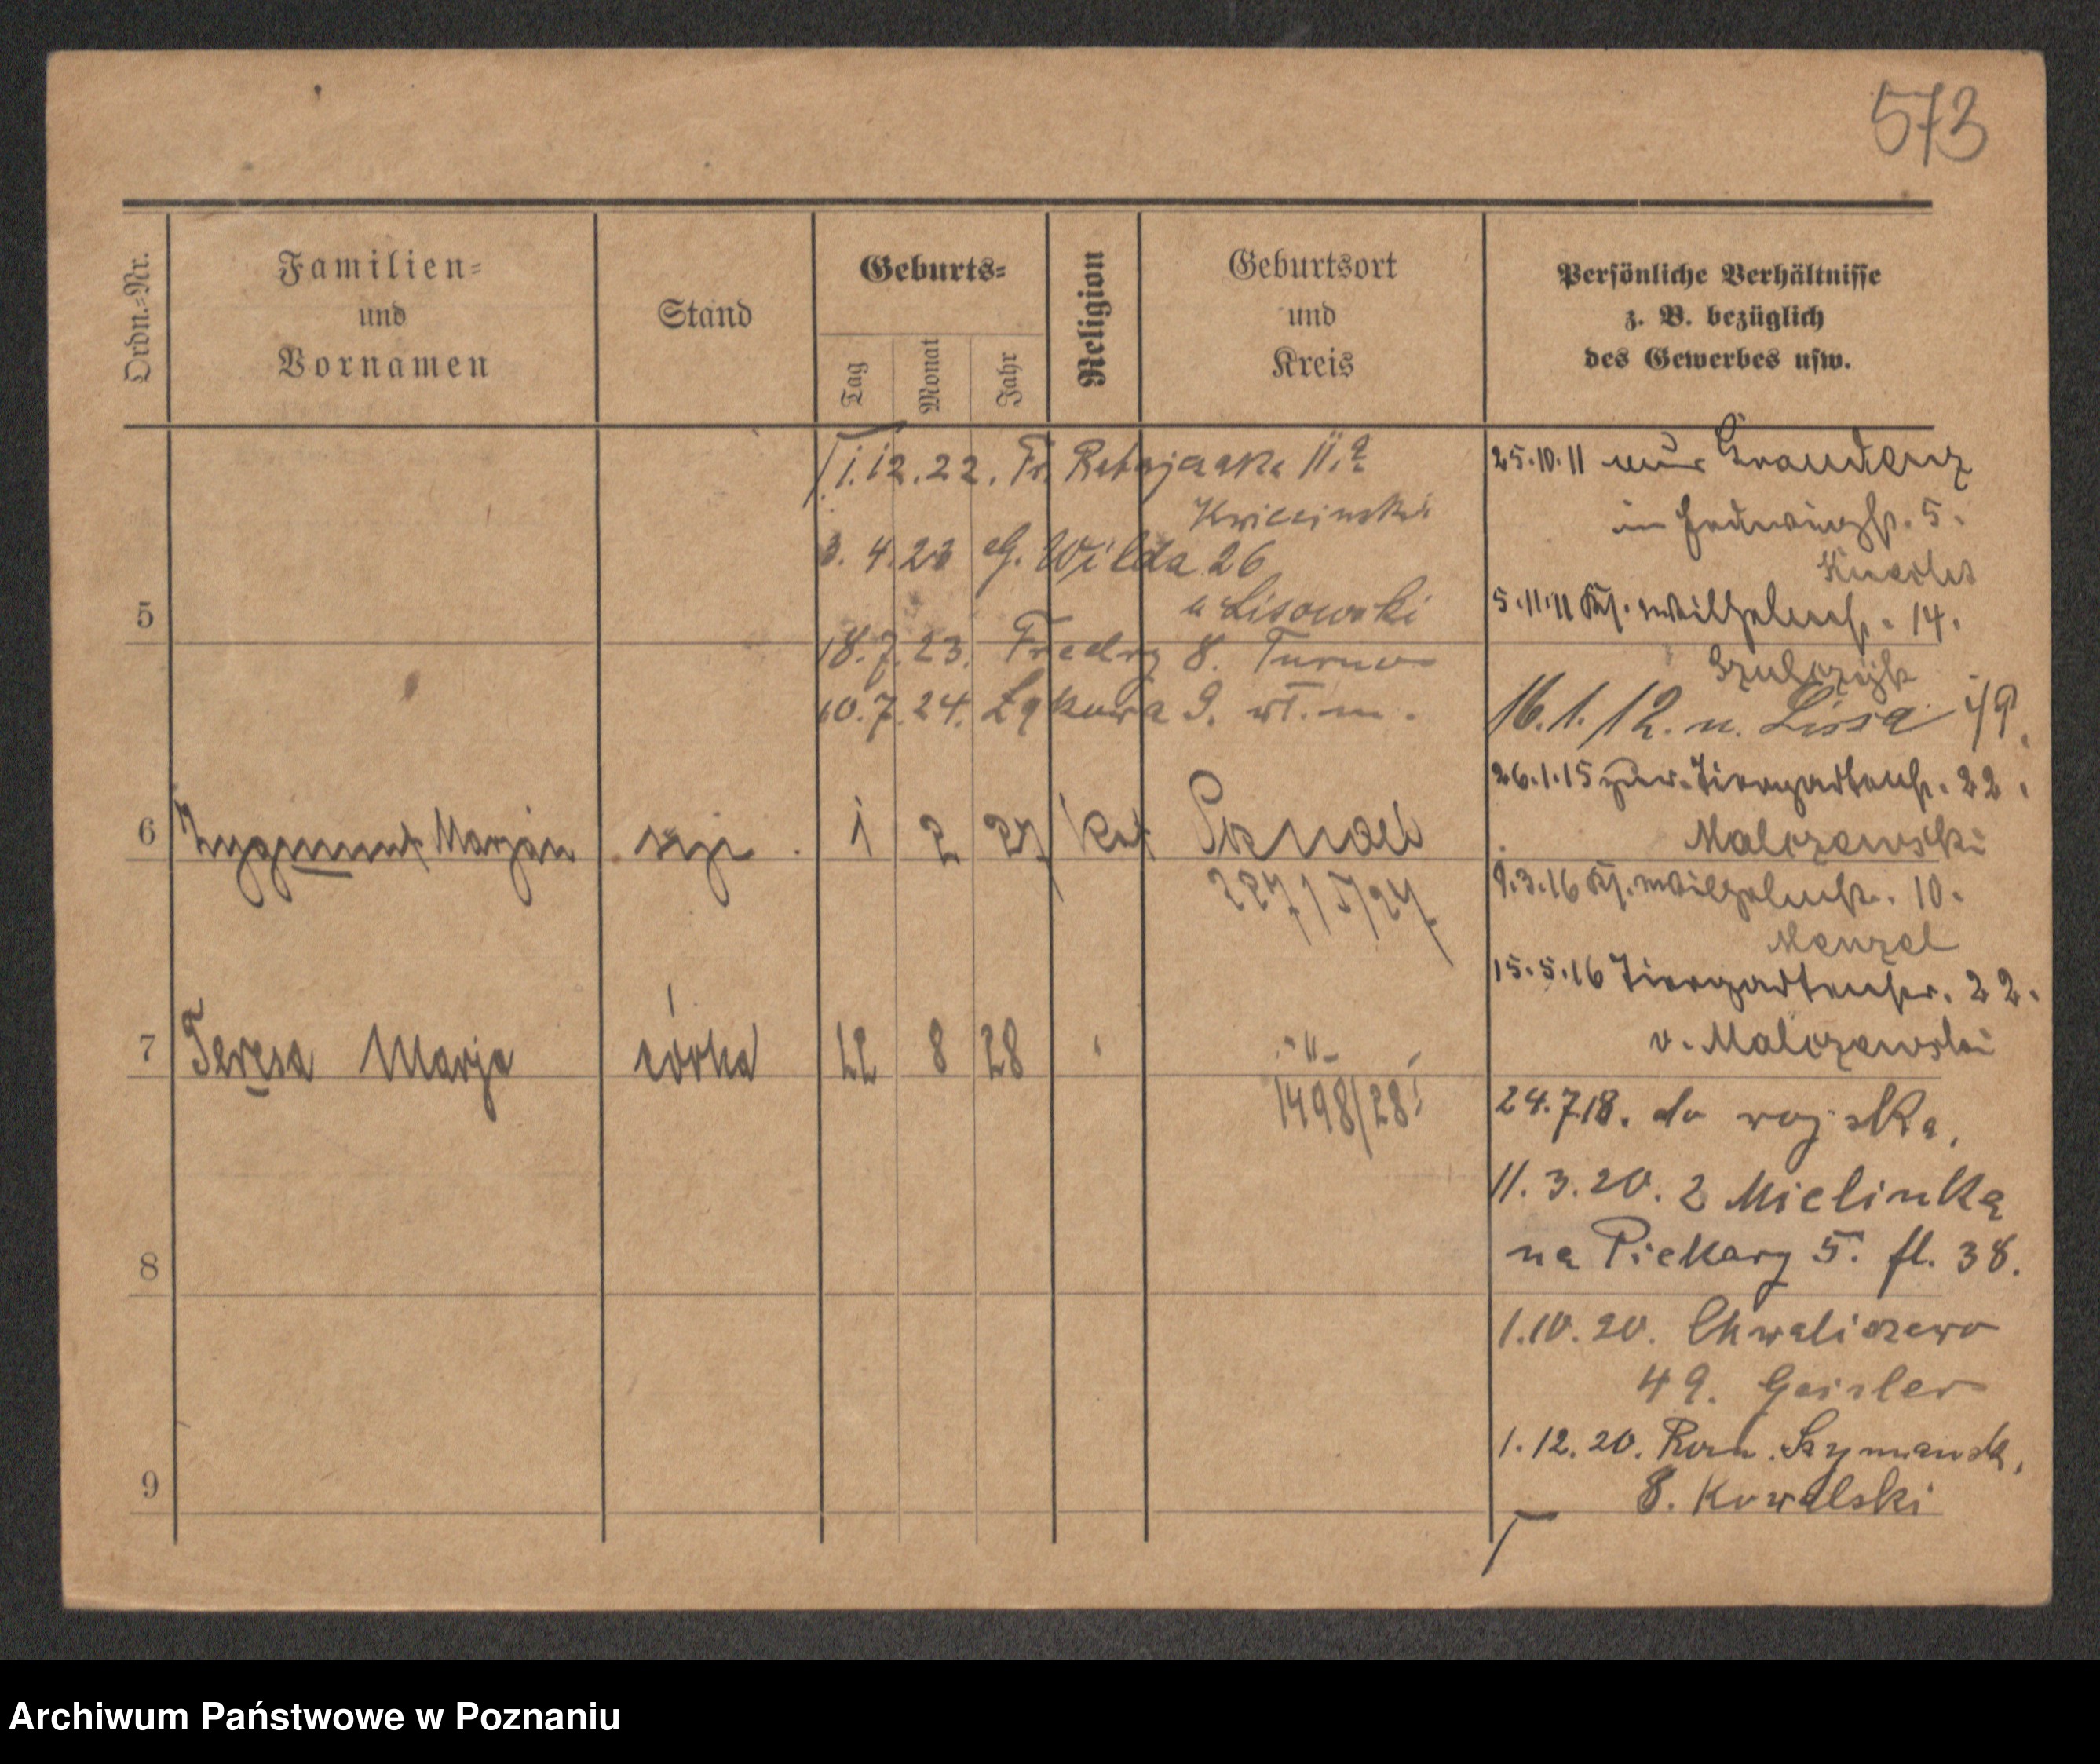 573
Ordn.-Nr.
Familien-
und
Vornamen
Stand
Geburts-
Tag
Monat
Jahr
Religion
Geburtsort
und
Kreis
Persönliche Verhältnisse
z. B. bezüglich
des Gewerbes usw.
1.12.22. Fr. Ratajczaka 11.a
3. 4.23 G. Wilda 26
u Lisowski
5
18.7.23. Fredry 8. Turno
10.7.24. Łąkowa 9. wł. m.
6 Zygmunt Marjan syn 1 2 27 kat Poznań
227/I/27
7 Teresa Marja córka 22 8 28 " -"-
1498/28
8
9
25.10.11 aus Graudenz
in Hedwigstr. 5.
5.11.11 Kr. Wilhelmstr. 14.
Szulczyk
16.1.12. n. Lissa i/P.
26.1.15 zur. Tiergartenstr. 22.
Malczewski
9.3.16 Kr. Wilhelmstr. 10.
Menzel
15.5.16 Tiergartenstr. 22.
v. Malczewski
24.7.18. do wojska.
11.3.20. z Mielinka
na Piekary 5. fl. 38.
1.10.20. Chwaliszewo
49. Geisler
1.12.20. Rom. Szymańsk.
8. Kowalski
Archiwum Państwowe w Poznaniu